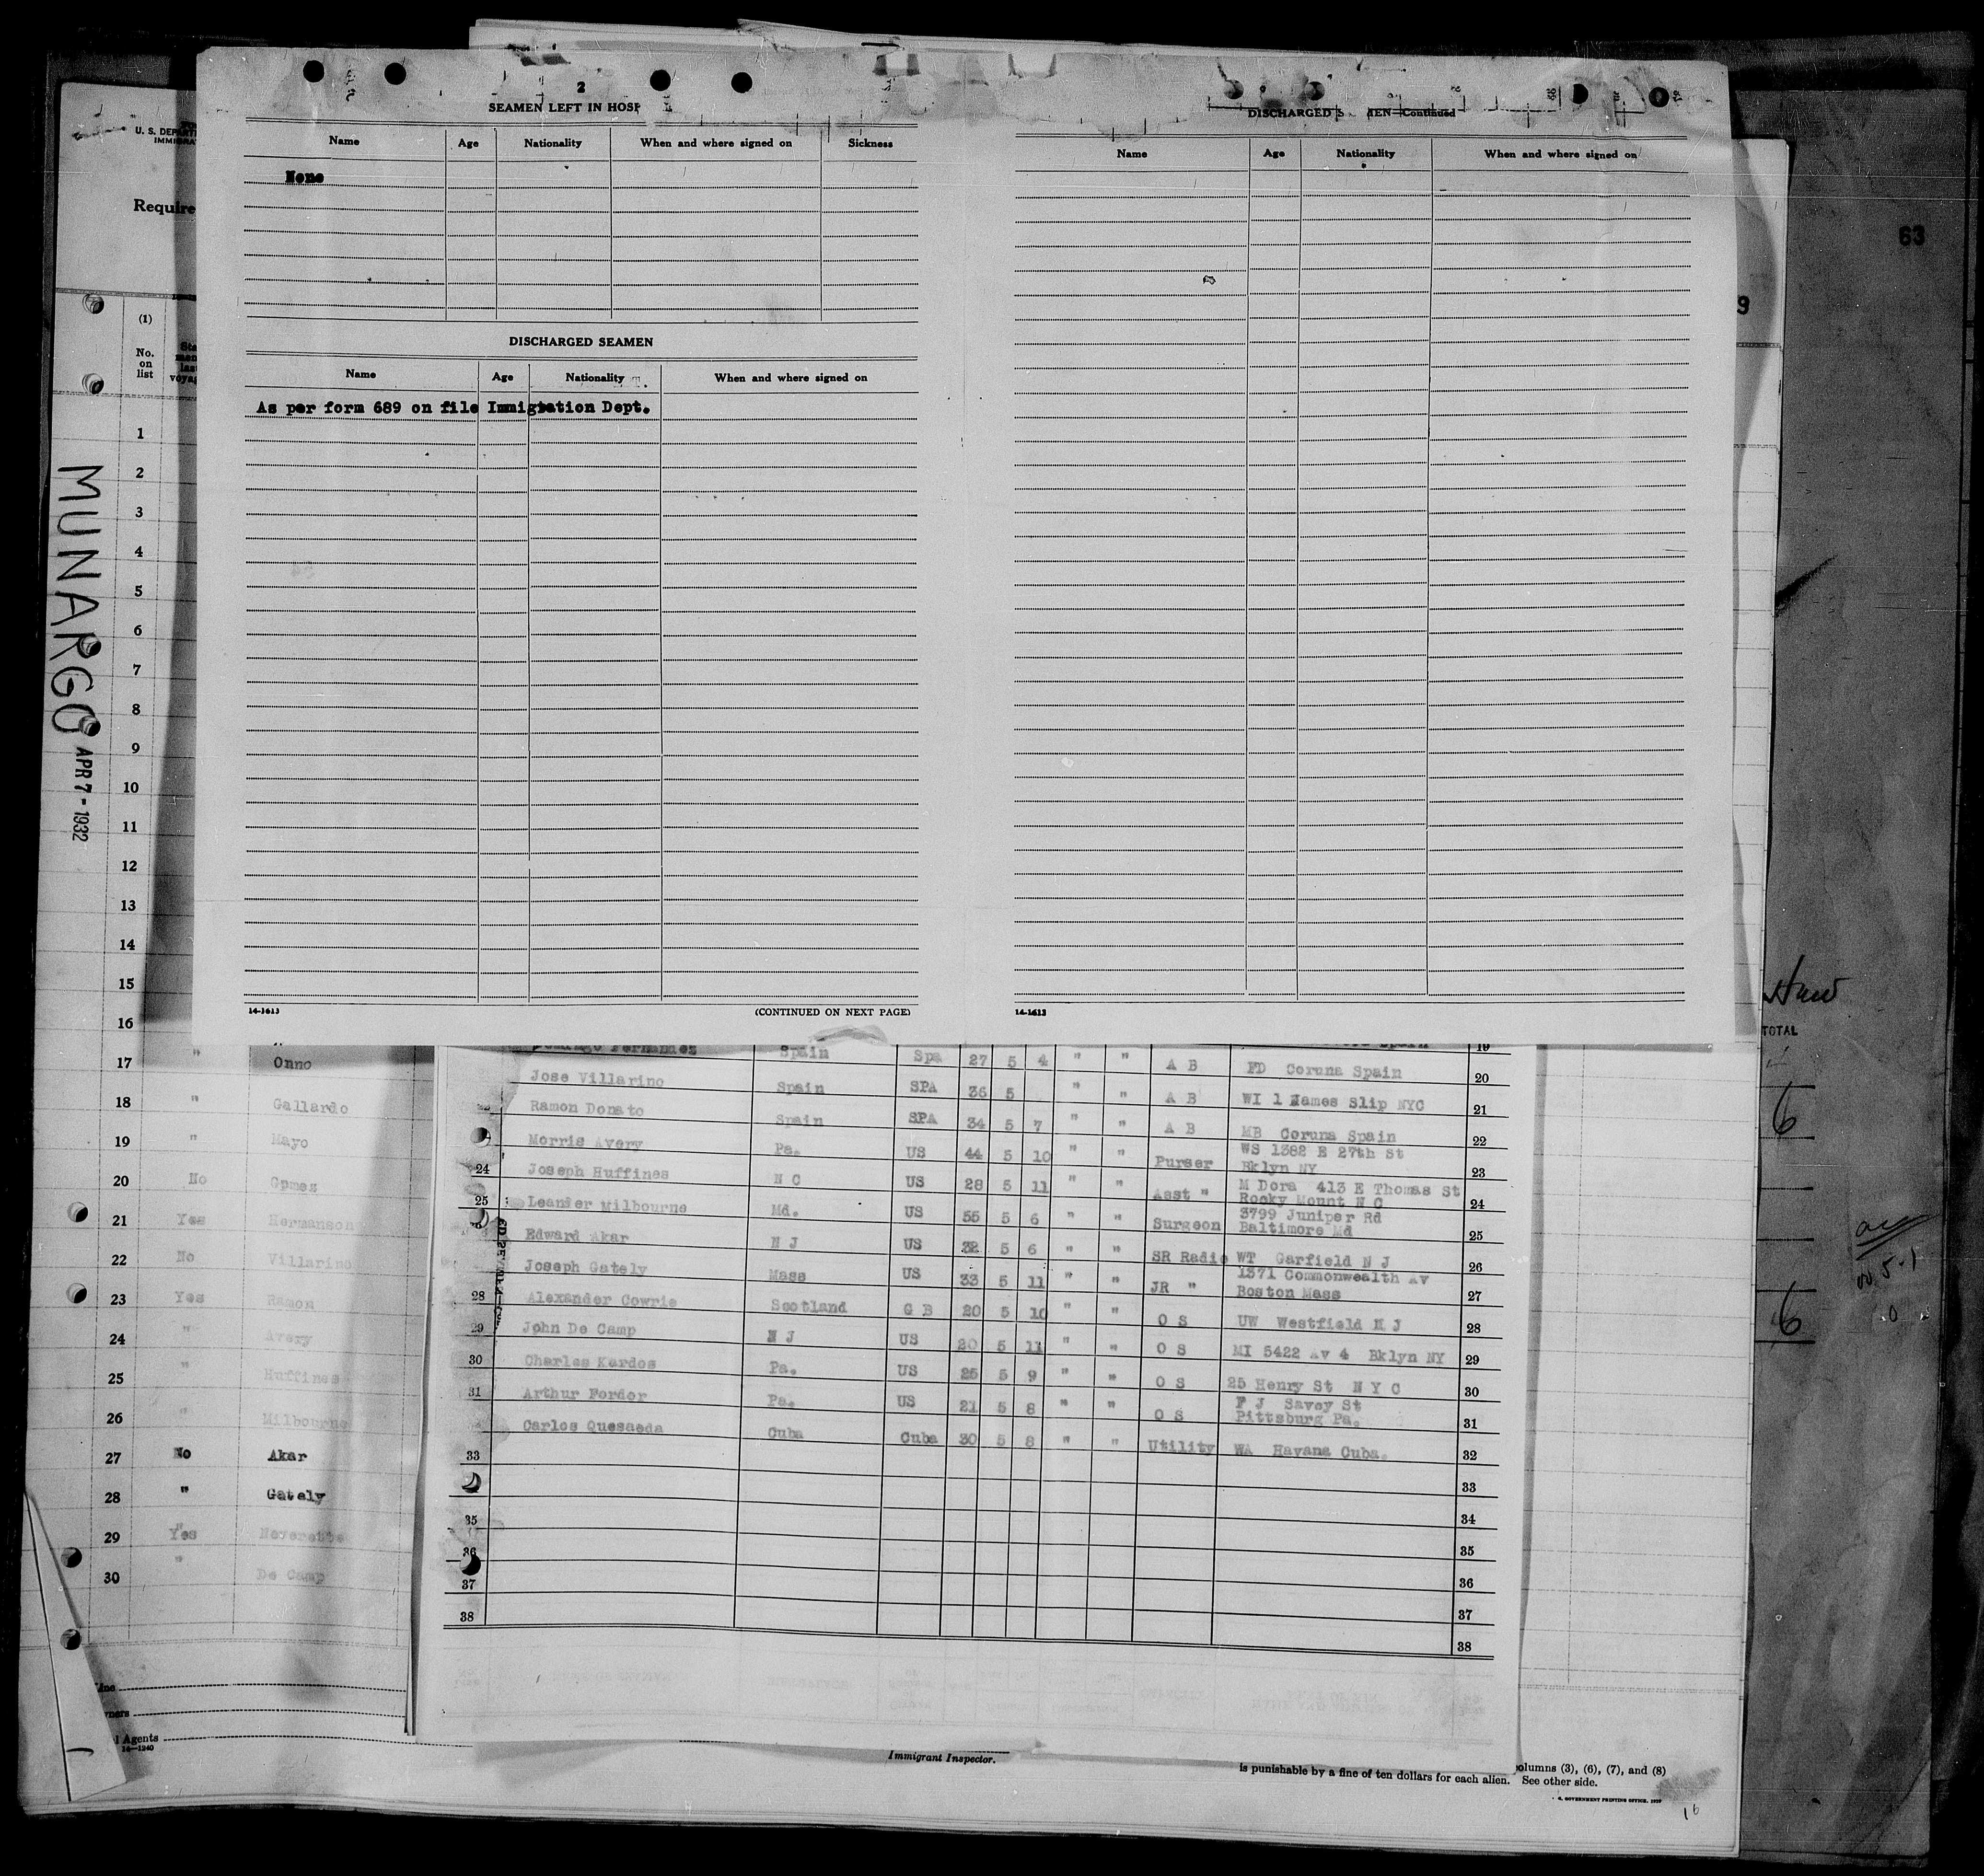 2
SEAMEN LEFT IN HOSP
Name Age Nationality When and where signed on Sickness
None
DISCHARGED SEAMEN
Name Age Nationality When and where signed on
As per form 689 on file Immigration Dept.
14-1613
(CONTINUED ON NEXT PAGE)
DISCHARGED S MEN—Continued
Name Age Nationality When and where signed on
14-1613
63
9
U. S. DEPART
IMMIGRA
Require
(1)
No.
on
list
MUNARGO
APR 7 - 1932
1
2
3
4
5
6
7
8
9
10
11
12
13
14
15
16
17 " Onno
18 " Gallardo
19 " Mayo
20 No Gpmez
21 Yes Hermanson
22 No Villarino
23 Yes Ramon
24 " Avery
25 " Huffines
26 " Milbourne
27 No Akar
28 " Gately
29 Yes Neverette
30 " De Camp
l Agents
14—1240
Domingo Fernandez Spain Spa 27 5 4 " " A B FD Coruna Spain 20
Jose Villarino Spain SPA 36 5 " " A B WI 1 James Slip NYC 21
Ramon Donato Spain SPA 34 5 7 " " A B MB Coruna Spain 22
Morris Avery Pa. US 44 5 10 " " Purser WS 1382 E 27th St
Bklyn NY 23
24 Joseph Huffines N C US 28 5 11 " " Asst " M Dora 413 E Thomas St
Rocky Mount N C 24
25 Leander Milbourne Md. US 55 5 6 " " Surgeon 3799 Juniper Rd
Baltimore Md 25
Edward Akar N J US 32 5 6 " " SR Radio WT Garfield N J 26
Joseph Gately Mass US 33 5 11 " " JR " 1371 Commonwealth Av
Boston Mass 27
28 Alexander Cowrie Scotland G B 20 5 10 " " O S UW Westfield N J 28
29 John De Camp N J US 20 5 11 " " O S MI 5422 Av 4 Bklyn NY 29
30 Charles Kardos Pa. US 25 5 9 " " O S 25 Henry St N Y C 30
31 Arthur Forder Pa. US 21 5 8 " " O S F J Savoy St
Pittsburg Pa. 31
Carlos Quesaeda Cuba Cuba 30 5 8 " " Utility WA Havana Cuba. 32
33 33
34
35 35
36 36
37 37
38 38
TOTAL
6
6
Immigrant Inspector.
olumns (3), (6), (7), and (8)
is punishable by a fine of ten dollars for each alien. See other side.
GOVERNMENT PRINTING OFFICE
16